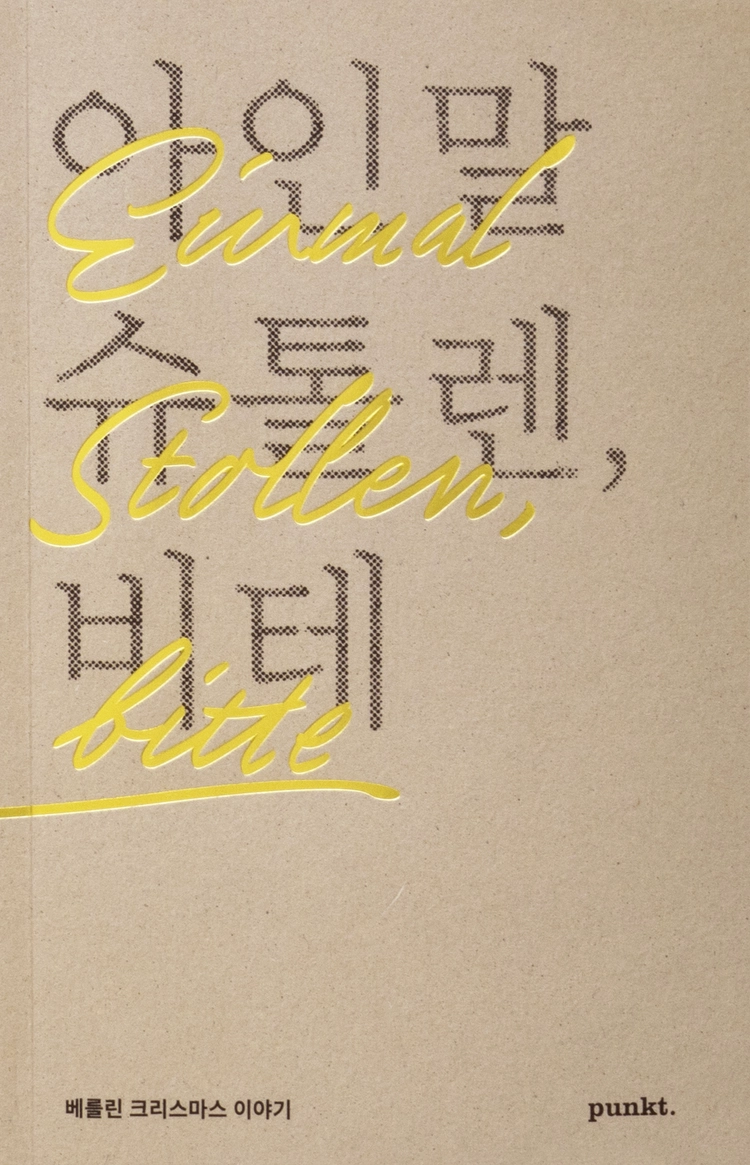 아인말
Einmal
슈톨렌,
Stollen,
비테
bitte
베를린 크리스마스 이야기
punkt.